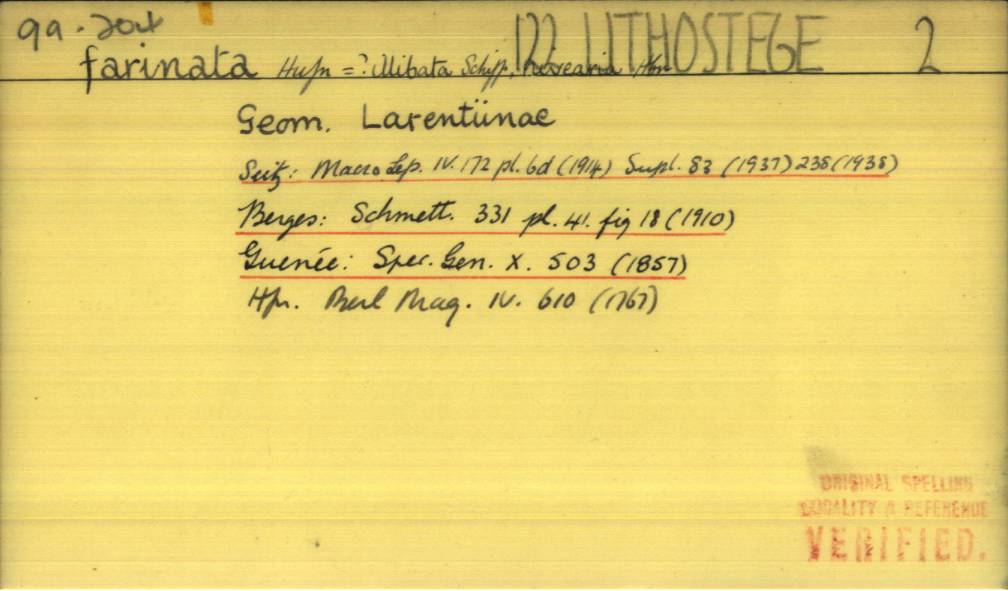 99.
122 LITHOSTEGE 2
farinata Hufn = ? illibata Schiff, nivearia Hbn
Geom. Larentiinae
Seitz: Macro Lep. IV. 172 pl. 6d (1914) Supl. 83 (1937) 238 (1938)
Berges: Schmett. 331 pl. 41. fig 18 (1910)
Guenée: Spec. Gen. X. 503 (1857)
Hfn. Berl Mag. IV. 610 (1767)
ORIGINAL SPELLING
LOCALITY & REFERENCE
VERIFIED.